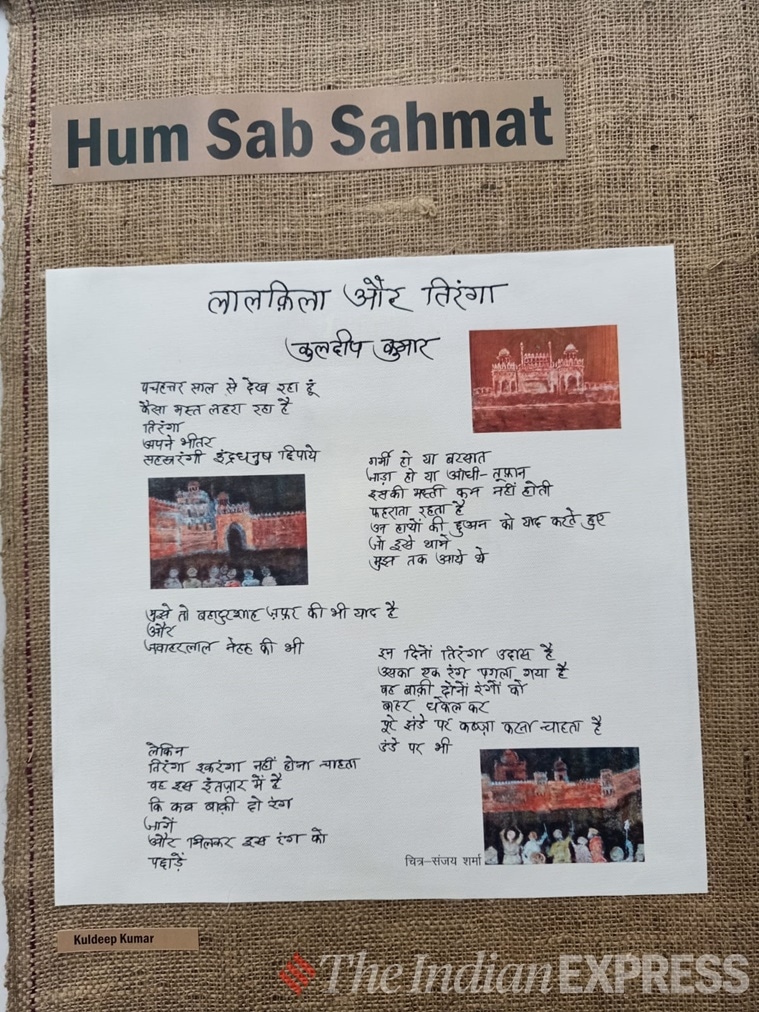 Hum Sab Sahmat
लालक़िला और तिरंगा
कुलदीप कुमार
पचहत्तर साल से देख रहा हूं
कैसा मस्त लहरा रहा है
तिरंगा
अपने भीतर
सहस्ररंगी इंद्रधनुष छिपाये
गर्मी हो या बरसात
जाड़ा हो या आंधी-तूफ़ान
इसकी मस्ती कम नहीं होती
फहराता रहता है
उन हाथों की छुअन को याद करते हुए
जो इसे थामे
मुझ तक आये थे
मुझे तो बहादुरशाह ज़फ़र की भी याद है
और
जवाहरलाल नेहरू की भी
इन दिनों तिरंगा उदास है
उसका एक रंग पगला गया है
वह बाक़ी दोनों रंगों को
बाहर धकेल कर
पूरे झंडे पर कब्ज़ा करना चाहता है
डंडे पर भी
लेकिन
तिरंगा इकरंगा नहीं होना चाहता
वह इस इंतज़ार में है
कि कब बाक़ी दो रंग
जागें
और मिलकर इस रंग को
पछाड़ें
चित्र-संजय शर्मा
Kuldeep Kumar
The Indian EXPRESS